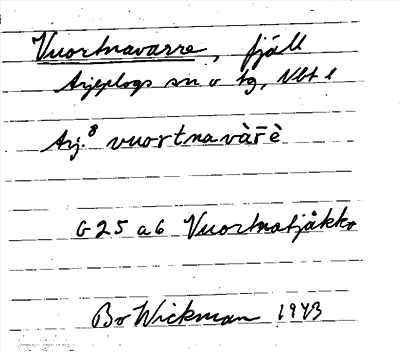 Vuortnavarre, fjäll
Arjeplogs sn o tg, Vbt l
Arj.8 vuortnavàr̄è
G 25 a 6 Vuortnatjåkko
Bo Wickman 1943